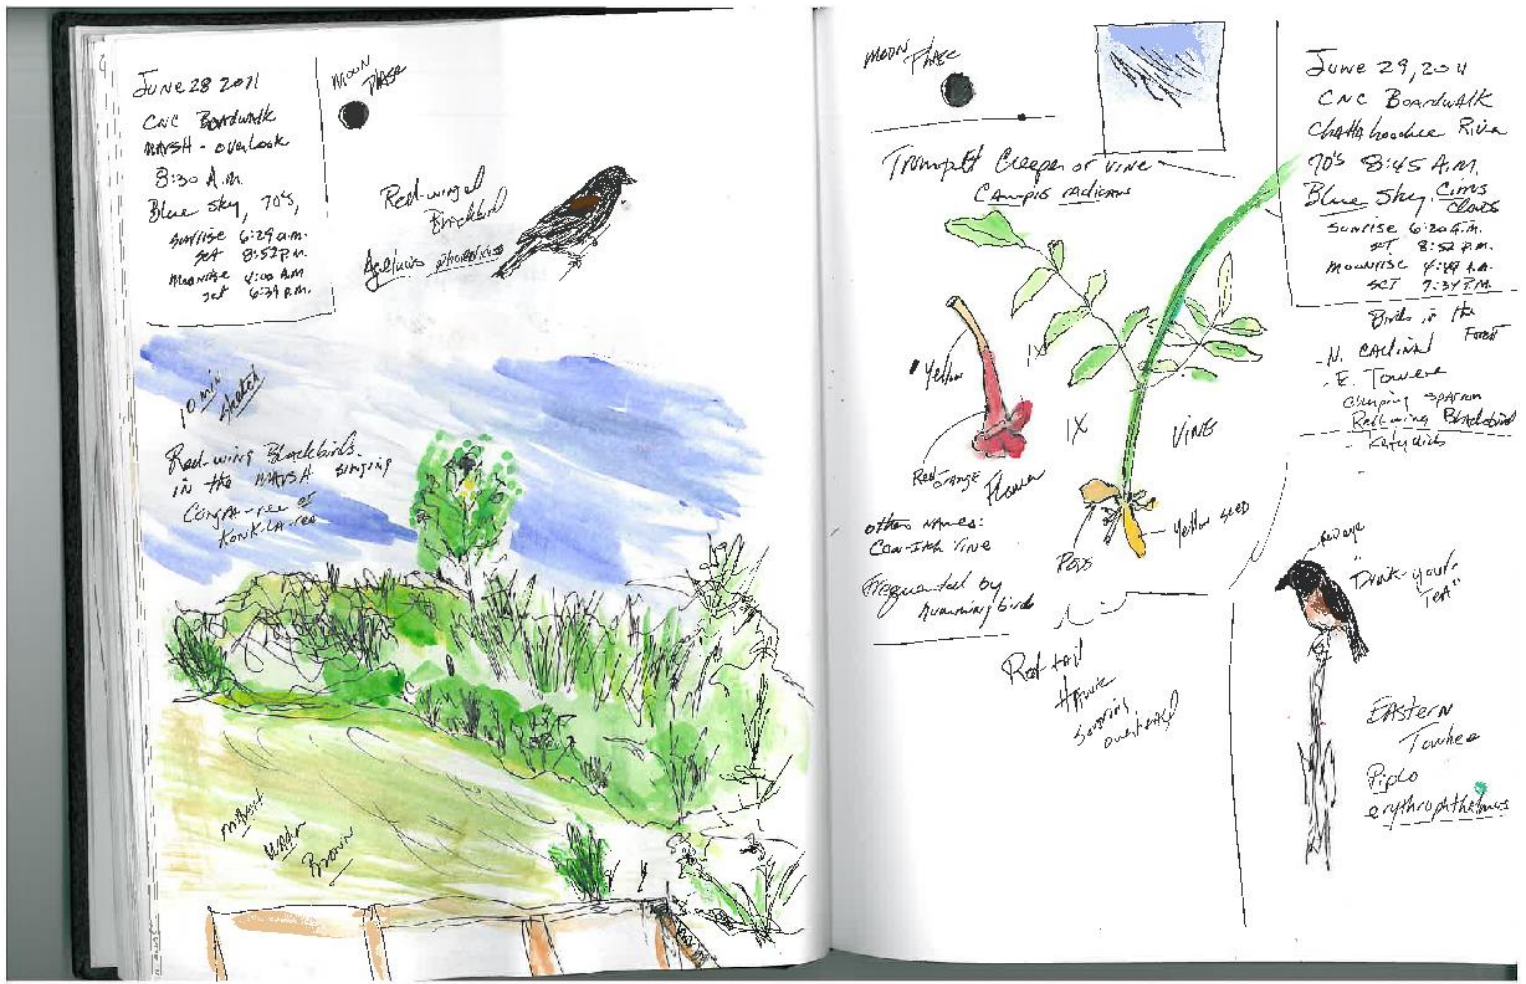 June 28 2011
CNC Boardwalk
Marsh - overlook
8:30 A.M.
Blue Sky, 70's,
Sunrise 6:29 a.m.
Set 8:52 P.M.
Moonrise 4:00 A.M
Set 6:39 P.M.
Moon
Phase
Red-winged
Blackbird
Agelaius phoeniceus
10 min
sketch
Red-wing Blackbirds.
in the marsh singing
Conqua-ree or
Konk-la-ree
Marsh
Water
Brown
Moon Phase
Trumpet Creeper or Vine
Campis radicans
Yellow
1X
Red orange
Flower
1X
Vine
Yellow seed
Pods
Other names:
Cow-Itch Vine
Frequented by
Hummingbirds
Red-tail
Hawk
soaring
overhead
June 29, 2011
CNC Boardwalk
Chattahoochee River
70's 8:45 A.M.
Blue Sky, Cirrus
Clouds
Sunrise 6:20 A.M.
Set 8:52 P.M.
Moonrise 4:49 A.M.
Set 7:34 P.M.
Birds in the
Forest
- N. Cardinal
- E. Towhee
Chipping sparrow
Red-wing Blackbird
- Katydids
-
Red eye
"Drink-your-
Tea"
Eastern
Towhee
Piplo
erythrophthelmus